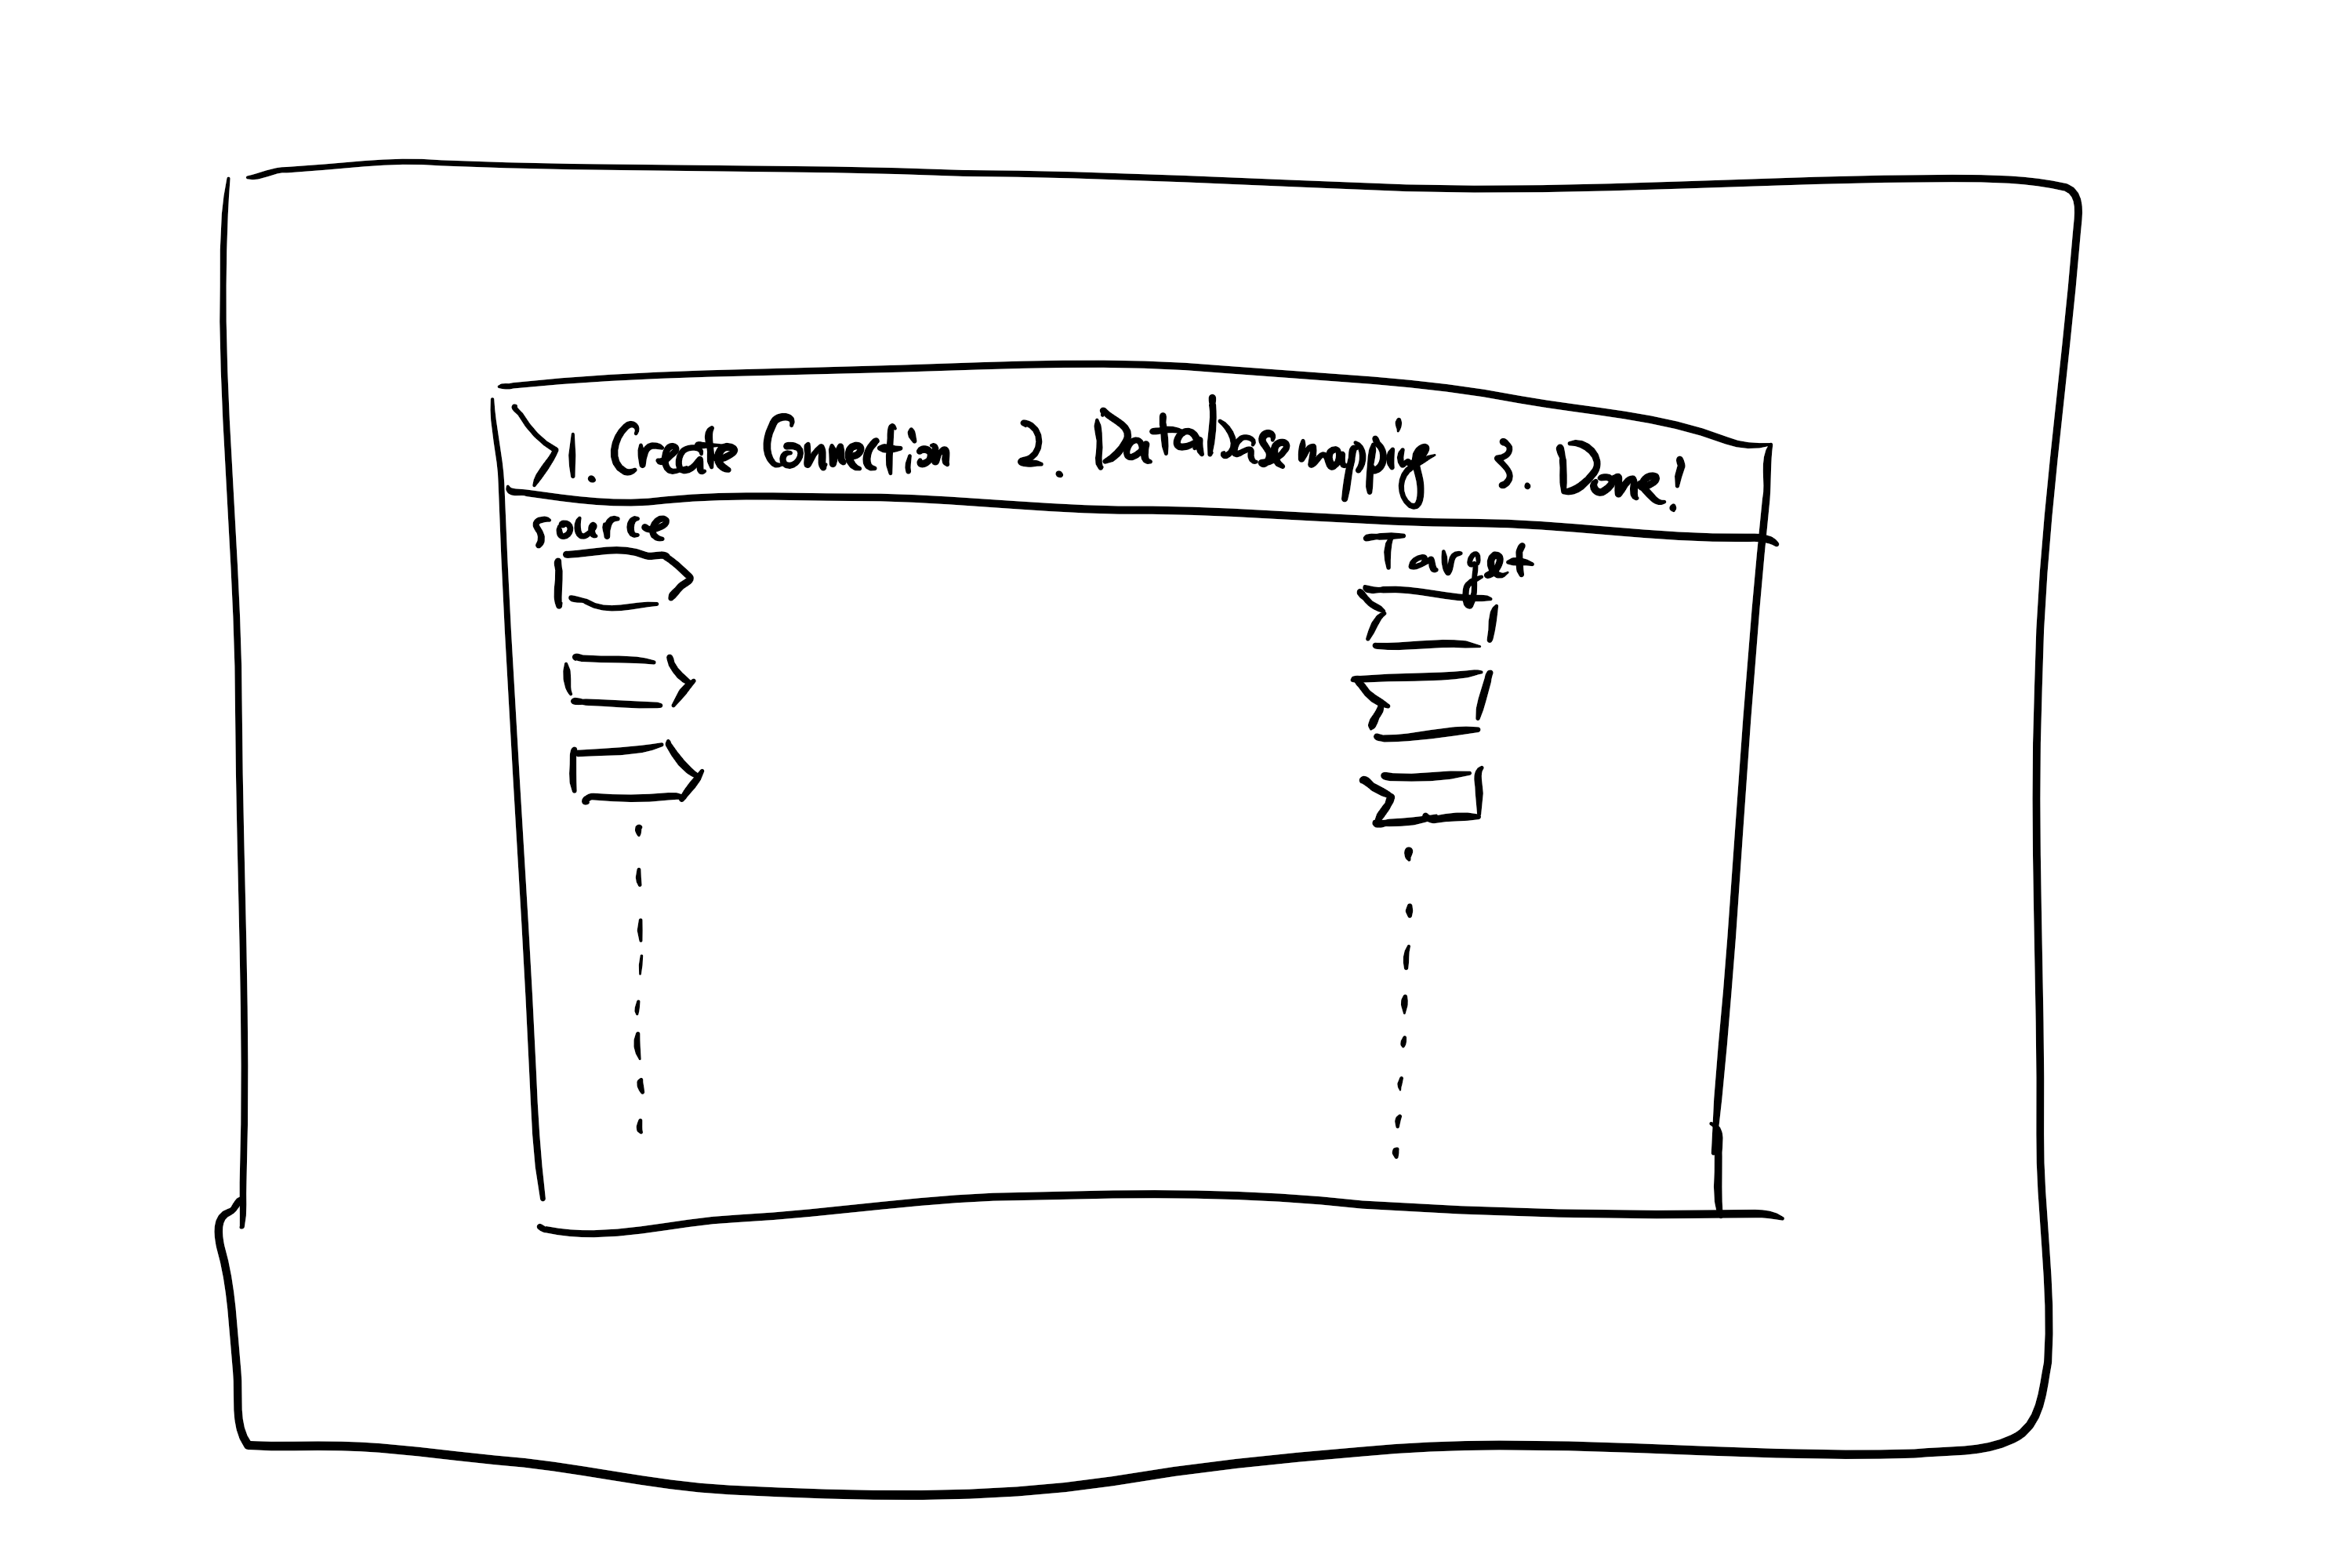 1. Create Connection 2. Databasemapping 3. Done!
source
Target